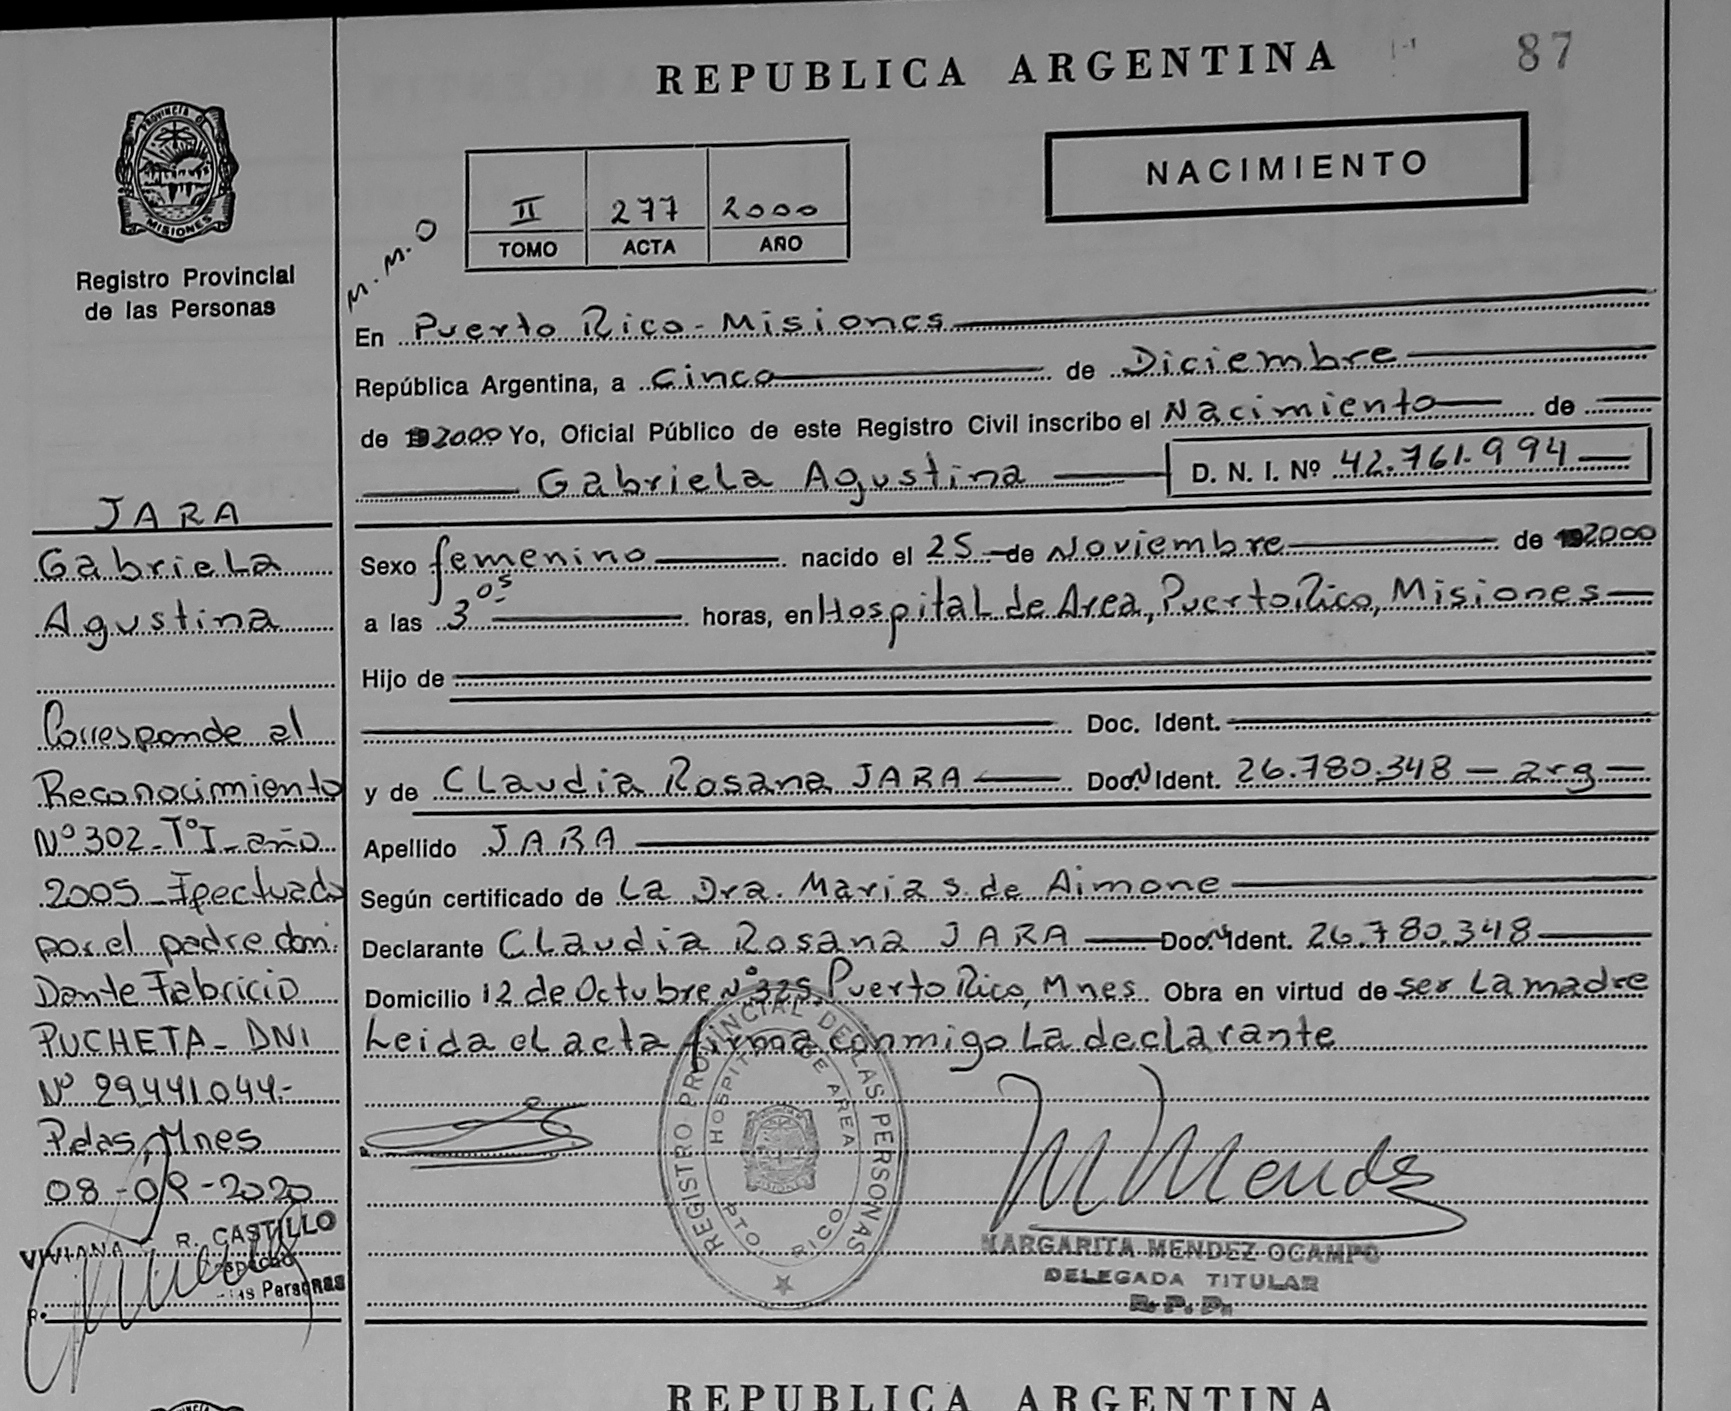 REPUBLICA ARGENTINA
87
NACIMIENTO
II 277 2000
TOMO ACTA AÑO
PROVINCIA DE MISIONES
Registro Provincial
de las Personas
M.M.O
En Puerto Rico - Misiones
República Argentina, a Cinco de Diciembre
de 2000 Yo, Oficial Público de este Registro Civil inscribo el Nacimiento de
Gabriela Agustina D. N. I. Nº 42.761.994
Sexo femenino nacido el 25 de Noviembre de 2000
a las 3 05 horas, en Hospital de Area, Puerto Rico, Misiones
Hijo de
Doc. Ident.
y de Claudia Rosana JARA Doc. N Ident. 26.780.348 - arg
Apellido JARA
Según certificado de La Dra. Maria S. de Aimone
Declarante Claudia Rosana JARA Doc. N Ident. 26.780.348
Domicilio 12 de Octubre Nº 325, Puerto Rico, Mnes. Obra en virtud de ser La madre
Leida el acta firma conmigo La declarante
JARA
Gabriela
Agustina
Corresponde al
Reconocimiento
Nº 302 - Tº I - año
2005 - Efectuado
por el padre don:
Dante Fabricio
PUCHETA - DNI
Nº 29441.044.-
Pdas, Mnes
08 - 09 - 2020
VIVIANA R. CASTILLO
Despacho
las Personas
REGISTRO PROVINCIAL DE LAS PERSONAS
HOSPITAL DE AREA
PTO. RICO
M Mendz
MARGARITA MENDEZ OCAMPO
DELEGADA TITULAR
R. P. P.
REPUBLICA ARGENTINA